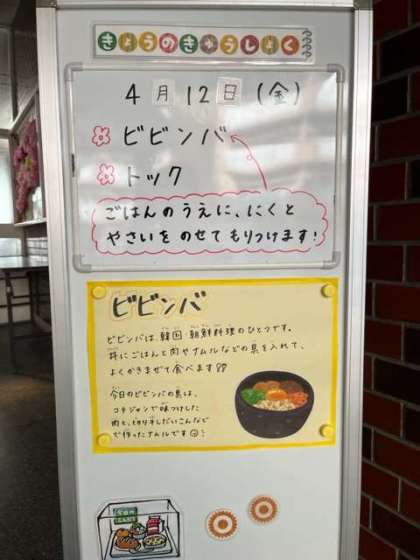 きょうのきゅうしょく
4月12日(金)
ビビンバ
トック
ごはんのうえに、にくと
やさいをのせてもりつけます!
ビビンバ
ビビンバは、韓国・朝鮮料理のひとつです。
丼にごはんと肉やナムルなどの具を入れて、
よくかきまぜて食べます!!
今日のビビンバの具は、
コチジャンで味つけした
肉と、切り干しだいこんなど
で作ったナムルです